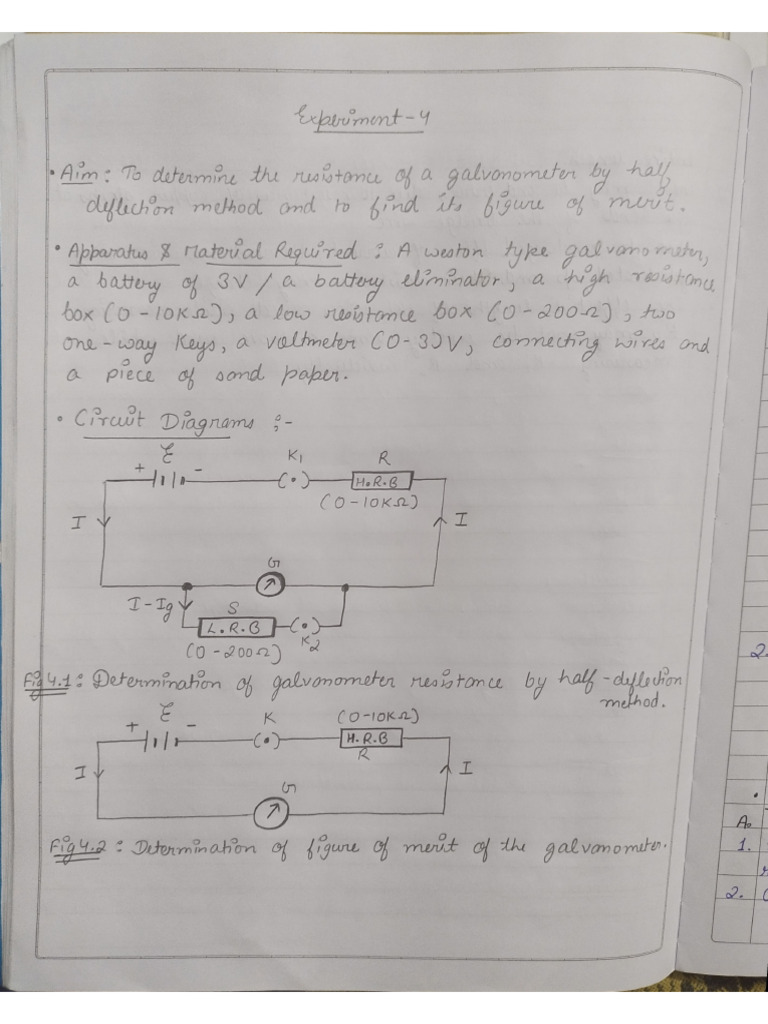 Experiment-4
• Aim: To determine the resistance of a galvanometer by half
deflection method and to find its figure of merit.
• Apparatus & Material Required : A weston type galvanometer,
a battery of 3V / a battery eliminator, a high resistance
box (0-10KΩ), a low resistance box (0-200Ω), two
one-way Keys, a voltmeter (0-3)V, connecting wires and
a piece of sand paper.
• Circuit Diagrams :-
+ Ɛ - K1 R
H.R.B
(0-10KΩ)
I I
G
I-Ig S
L.R.B K2
(0-200Ω)
Fig 4.1: Determination of galvanometer resistance by half-deflection
method.
+ Ɛ - K (0-10KΩ)
H.R.B
R
I I
G
Fig 4.2 : Determination of figure of merit of the galvanometer.
2.
•
1.
2.